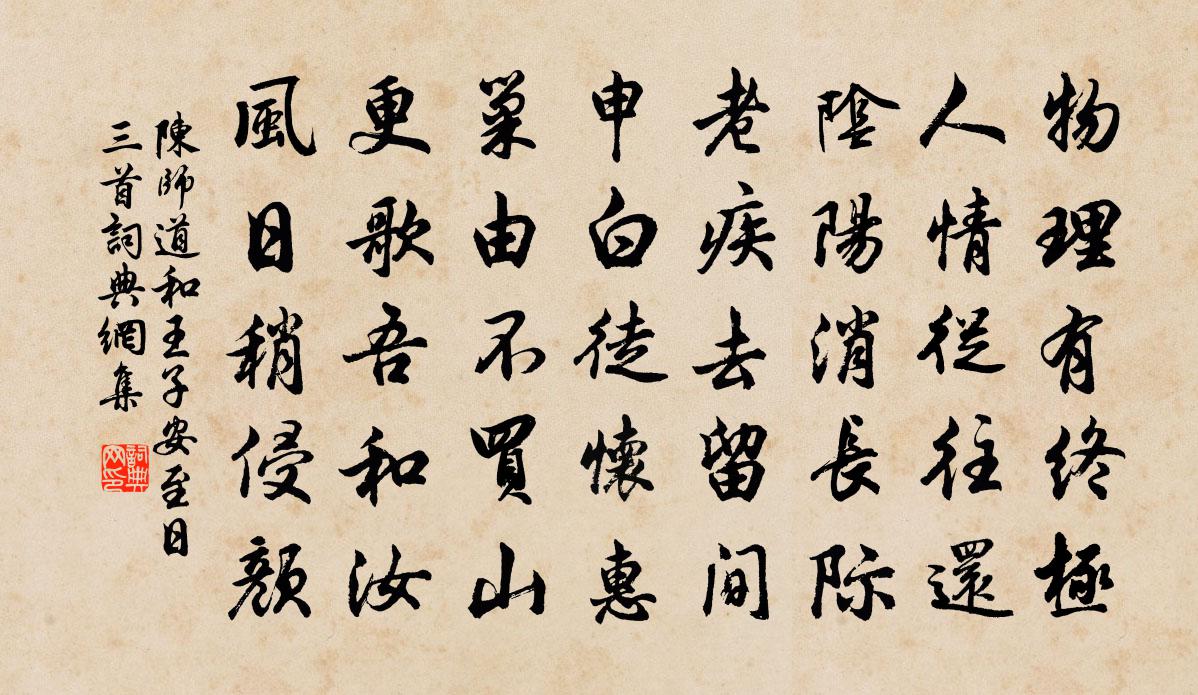 物理有终極
人情從往還
陰陽消長际
老疾去留间
申白徒懷惠
巢由不買山
更歌吾和汝
風日稍侵顏
陳師道和王子安至日
三首詞典網集
詞典
网印